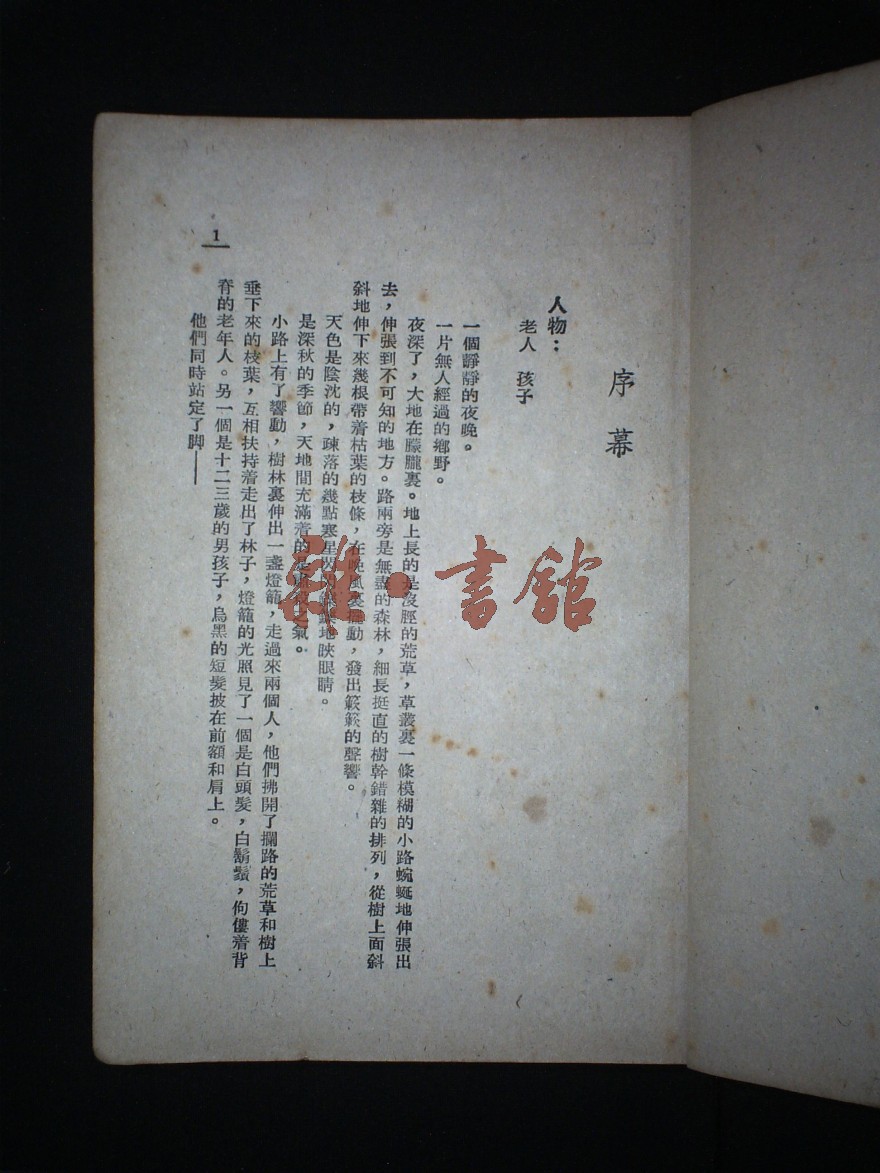 序幕
人物：
老人 孩子
一個靜靜的夜晚。
一片無人經過的鄉野。
夜深了，大地在朦朧裏。地上長的是沒脛的荒草，草叢裏一條模糊的小路蜿蜒地伸張出
去，伸張到不可知的地方。路兩旁是無盡的森林，細長挺直的樹幹錯雜的排列，從樹上面斜
斜地伸下來幾根帶着枯葉的枝條，在晚風裏搖動，發出簌簌的聲響。
天色是陰沈的，疎落的幾點寒星閃閃爍爍地䀹眼睛。
是深秋的季節，天地間充滿着的是之氣。
小路上有了響動，樹林裏伸出一盞燈籠，走過來兩個人，他們拂開了攔路的荒草和樹上
垂下來的枝葉，互相扶持着走出了林子，燈籠的光照見了一個是白頭髮，白鬍鬚，佝僂着背
脊的老年人。另一個是十二三歲的男孩子，烏黑的短髮披在前額和肩上。
他們同時站定了脚——
1
雜·書館